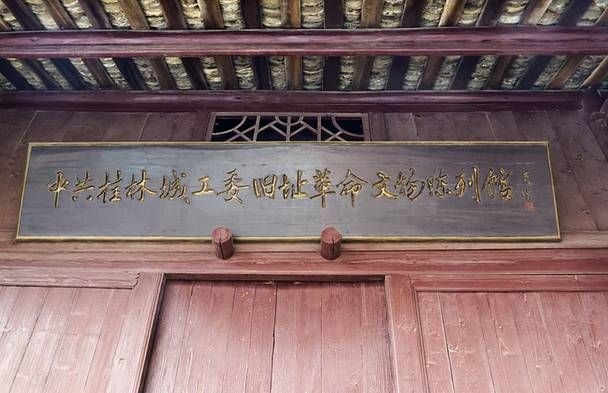 中共桂林城工委旧址革命文物陈列馆